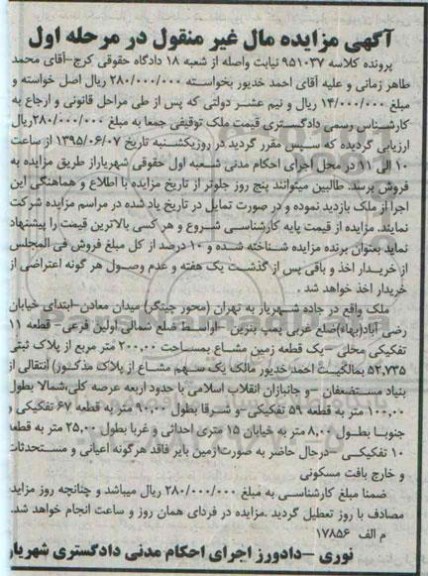 آگهی مزایده مال غیر منقول در مرحله اول
پرونده کلاسه ۹۵۱۰۳۷ نیابت واصله از شعبه ۱۸ دادگاه حقوقی کرج-آقای محمد
طاهر زمانی و علیه آقای احمد خدیور بخواسته ۲۸۰/۰۰۰/۰۰۰ ریال اصل خواسته و
مبلغ ۱۴/۰۰۰/۰۰۰ ریال و نیم عشر دولتی که پس از طی مراحل قانونی و ارجاع به
کارشناس رسمی دادگستری قیمت ملک توقیفی جمعا به مبلغ ۲۸۰/۰۰۰/۰۰۰ ریال
ارزیابی گردیده که سپس مقرر گردید در روز یکشنبه تاریخ ۱۳۹۵/۰۶/۰۷ از ساعت
۱۰ الی ۱۱ در محل اجرای احکام مدنی شعبه اول حقوقی شهریار از طریق مزایده به
فروش برسد. طالبین میتوانند پنج روز جلوتر از تاریخ مزایده با اطلاع و هماهنگی این
اجرا از ملک بازدید نموده و در صورت تمایل در تاریخ یاد شده در مراسم مزایده شرکت
نمایند. مزایده از قیمت پایه کارشناسی شروع و هر کسی بالاترین قیمت را پیشنهاد
نماید بعنوان برنده مزایده شناخته شده و ۱۰ درصد از کل مبلغ فروش فی المجلس
از خریدار اخذ و باقی پس از گذشت یک هفته و عدم وصول هر گونه اعتراضی از
خریدار اخذ خواهد شد .
ملک واقع در جاده شهریار به تهران (محور چیتگر) میدان معادن-ابتدای خیابان
رضی آباد(بهاء)ضلع غربی پمپ بنزین -اواسط ضلع شمالی اولین فرعی- قطعه ۱۱
تفکیکی محلی -یک قطعه زمین مشاع بمساحت ۲۰۰,۰۰ متر مربع از پلاک ثبتی
۵۲,۷۳۵ بمالکیت احمد خدیور مالک یک سهم مشاع از پلاک مذکور) انتقالی از
بنیاد مستضعفان -و جانبازان انقلاب اسلامی با حدود اربعه عرصه کلی،شمالا بطول
۱۰,۰۰ متر به قطعه ۵۹ تفکیکی-و شرقا بطول ۹۰,۰۰ متر به قطعه ۶۷ تفکیکی و
جنوبا بطول ۸,۰۰ متر به خیابان ۱۵ متری احداثی و غربا بطول ۲۵,۰۰ متر به قطعه
۱۰ تفکیکی -درحال حاضر به صورت زمین بایر فاقد هرگونه اعیانی و مستحدثات
و خارج بافت مسکونی
ضمنا مبلغ کارشناسی به مبلغ ۲۸۰/۰۰۰/۰۰۰ ریال میباشد و چنانچه روز مزایده
مصادف با روز تعطیل گردید .مزایده در فردای همان روز و ساعت انجام خواهد شد.
م الف ۱۷۸۵۶
نوری -دادورز اجرای احکام مدنی دادگستری شهریار